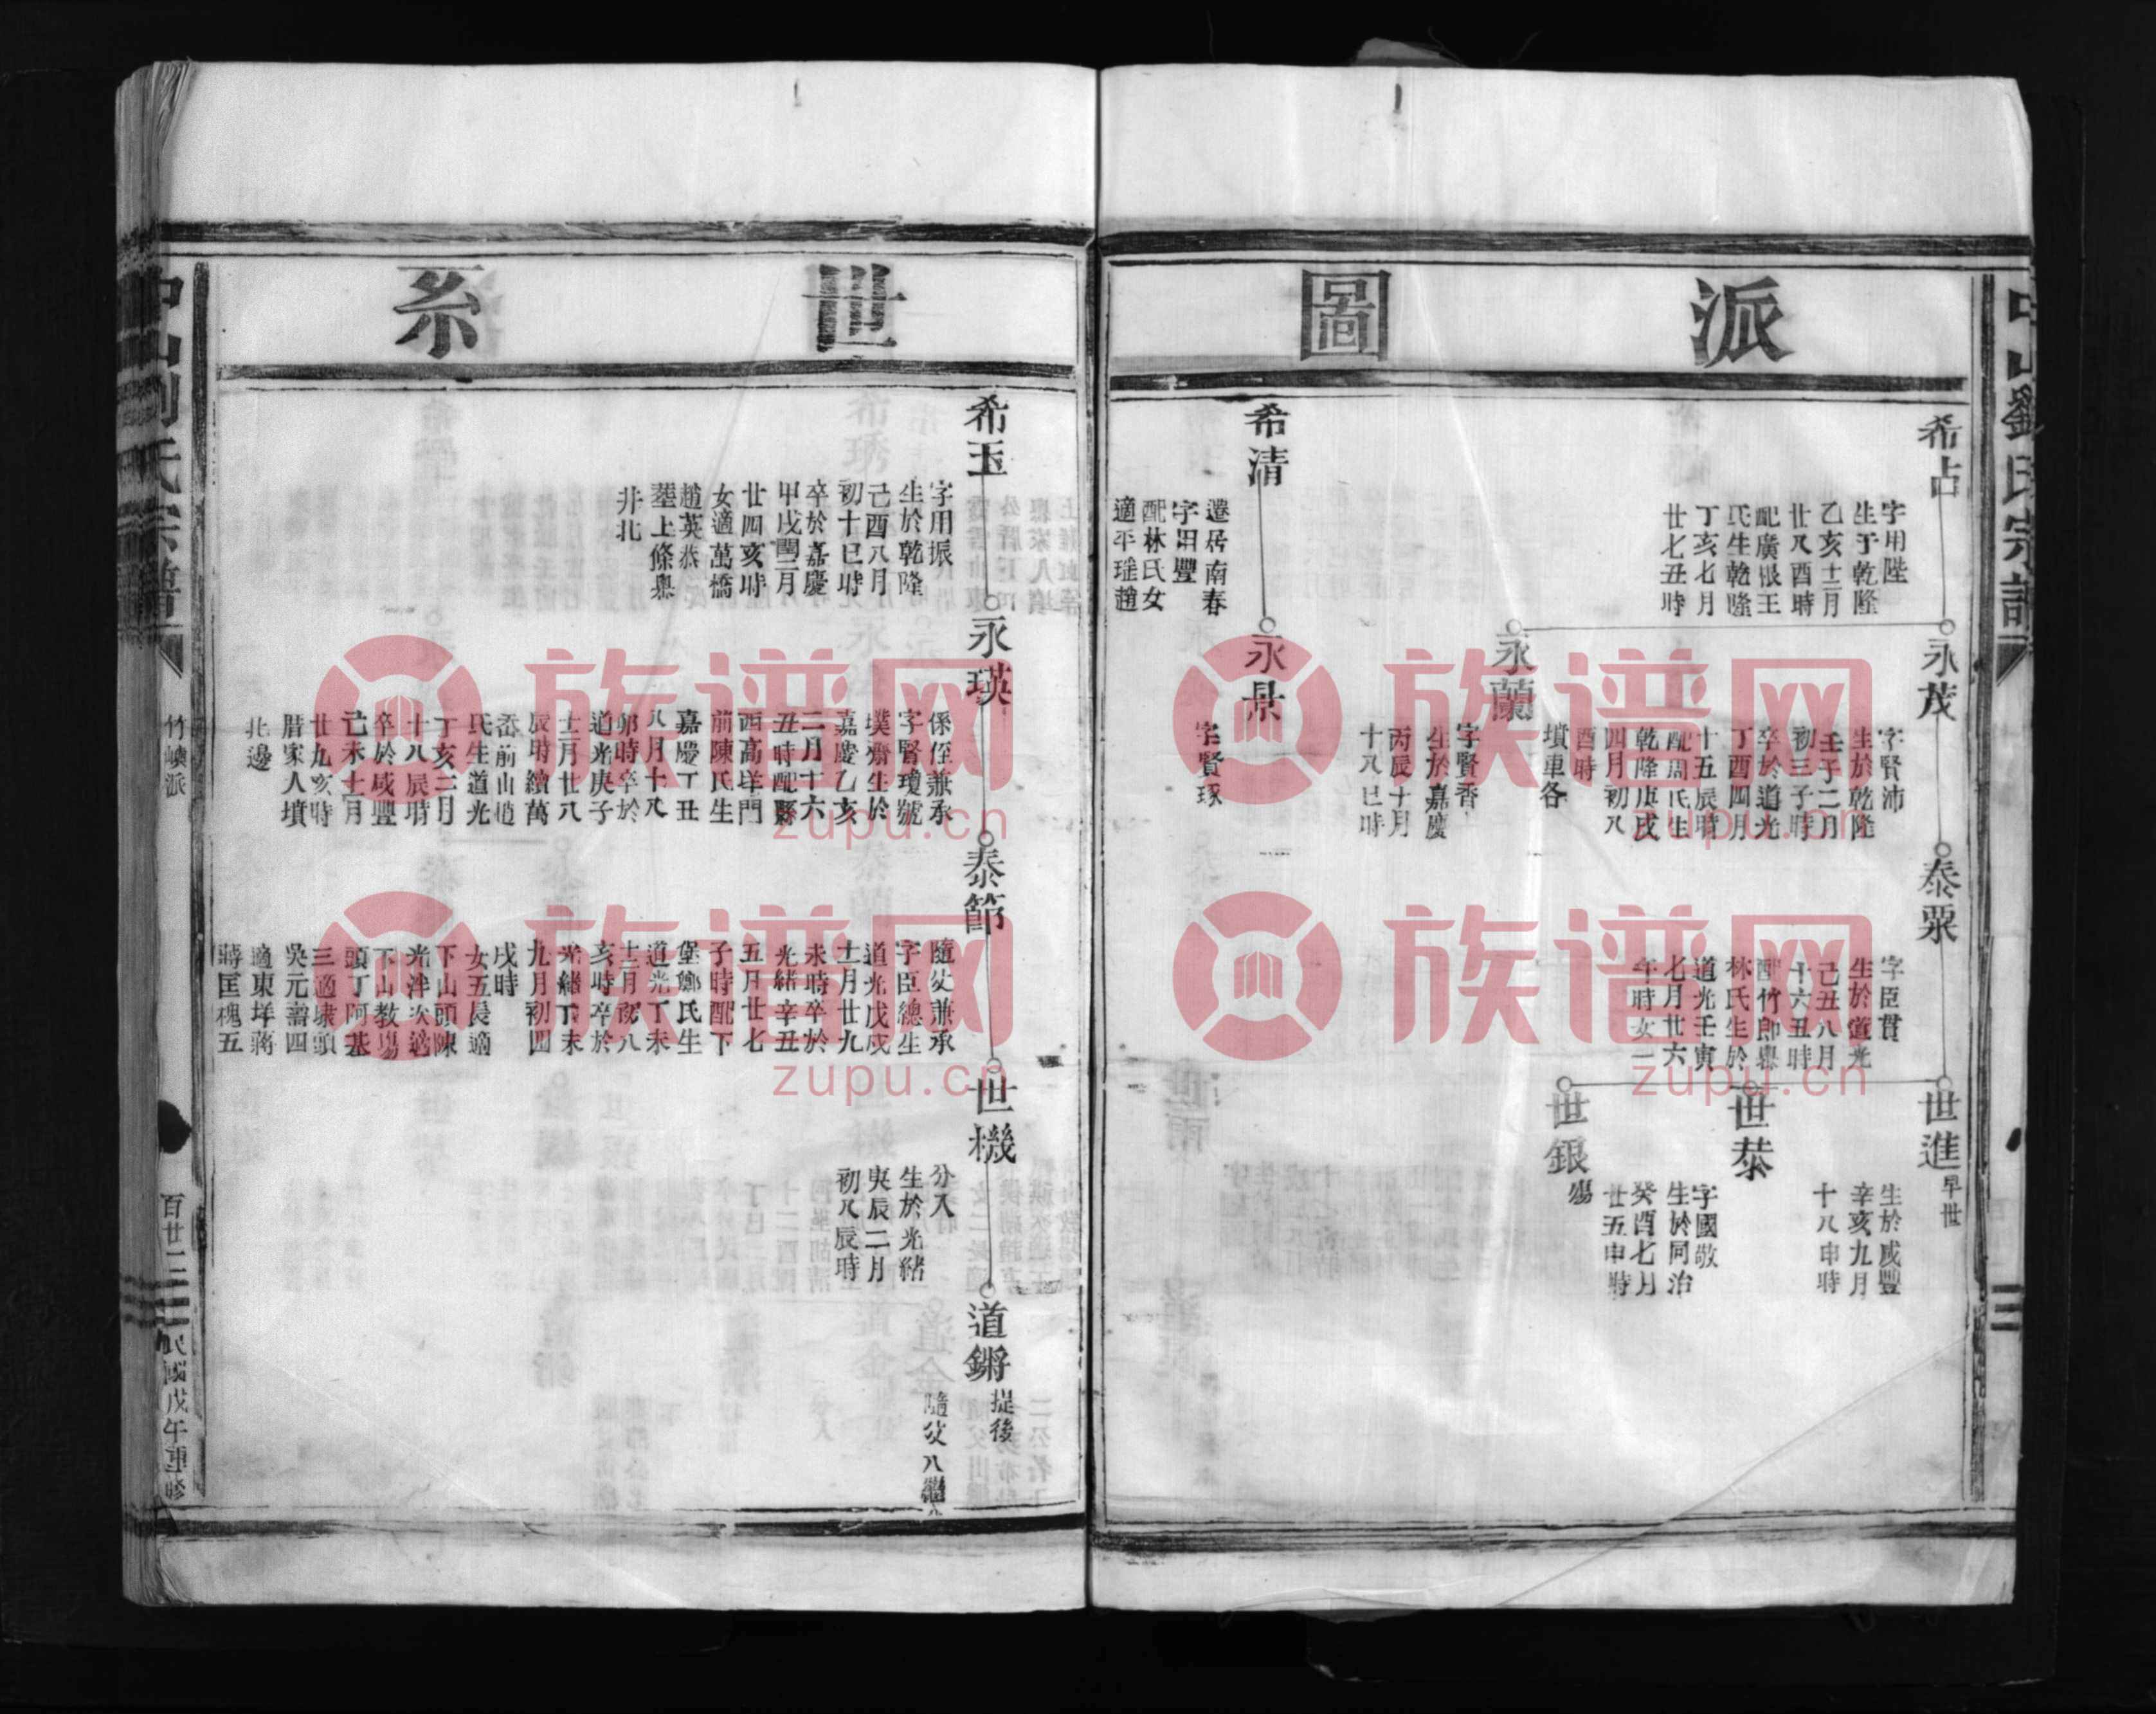 派圖
希占
字用陞
生于乾隆
乙亥十二月
廿八酉時
配廣恨王
氏生乾隆
丁亥七月
廿七丑時
永茂
字賢沛
生於乾隆
壬子二月
初三子時
卒於道光
丁酉四月
十五辰時
配周氏生
乾隆庚戌
四月初八
酉時
墳車各
泰粟
字臣貫
生於道光
己丑八月
十六丑時
配竹郎嶴
林氏生於
道光壬寅
七月廿六
午時女一
世進
早世
生於咸豐
辛亥九月
十八申時
世恭
字國敬
生於同治
癸酉七月
廿五申時
世銀
殤
永蘭
字賢香
生於嘉慶
丙辰十月
十八巳時
希清
遷居南春
字用豐
配林氏女
適平瑤趙
永景
字賢琢
世系
希玉
字用振
生於乾隆
己酉八月
初十巳時
卒於嘉慶
甲戌閏二月
廿四亥時
女適萬橋
趙英恭
塟上條嶴
井北
永瑛
係侄兼承
字賢瓊號
璞齋生於
嘉慶乙亥
三月十六
丑時配縣
西高垟門
前陳氏生
嘉慶丁丑
八月十八
卯時卒於
道光庚子
十二月廿八
辰時續萬
岙前山趙
氏生道光
丁亥二月
十八辰時
卒於咸豐
己未十二月
廿九亥時
厝家人墳
北邊
泰節
隨父兼承
字臣總生
道光戊戌
十一月廿九
未時卒於
光緒辛丑
五月廿七
子時配下
堡鄭氏生
道光丁未
十二月初八
亥時卒於
光緒丁未
九月初四
戌時
女五長適
下山頭陳
光泮次適
下山教場
頭丁阿基
三適隶頭
吳元壽四
適東垟蔣
蔣匡槐五
世機
分入
生於光緒
庚辰二月
初八辰時
道鏘
提後
隨父入繼
竹嶼派
百廿三
民國戊午重修
族谱网
zupu.cn
族谱网
zupu.cn
族谱网
zupu.cn
族谱网
zupu.cn